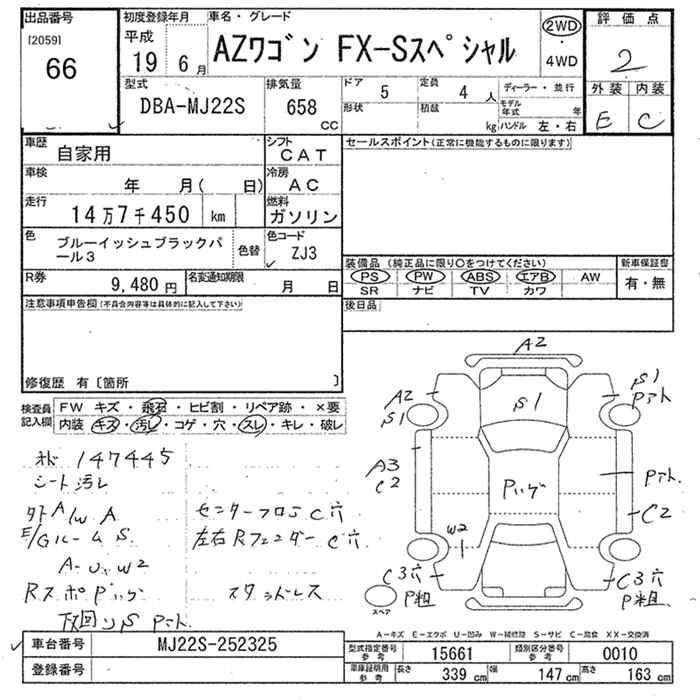 出品番号
[2059]
66
初度登録年月
平成
19 6 月
車名・グレード
AZワゴン FX-Sスペシャル
2WD
・
4WD
評価点
2
外装 内装
E C
型式
DBA-MJ22S
排気量
658
CC
ドア 5
定員 4 人
形状
積載
kg
ディーラー・並行
モデル年式 年
ハンドル 左・右
車歴
自家用
シフト
CAT
車検
年 月( 日)
冷房
AC
走行
14万7千450 km
燃料
ガソリン
色
ブルーイッシュブラックパール3
色替
色コード
ZJ3
R券
9,480 円
名変通知期限
月 日
セールスポイント(正常に機能するものに限ります)
装備品 (純正品に限り○をつけてください)
PS PW ABS エアB AW
SR ナビ TV カワ
新車保証書
有・無
後日品
注意事項申告欄(不具合内容等は具体的に記入して下さい)
修復歴 有〔箇所 〕
検査員記入欄
FW キズ・飛石・ヒビ割・リペア跡・×要
内装 キズ・汚レ・コゲ・穴・スレ・キレ・破レ
147445
シート汚レ
A/W A
E/Gルーム S
A-U.W2
センターフロS C穴
左右Rフェンダー C穴
スタッドレス
A2
A2
S1
S1
S1
Pアト
A3
C2
Pハゲ
Pアト
C2
W2
C3穴
P粗
C3穴
P粗
スペア
A-キズ E-エクボ U-凹み W-補修跡 S-サビ C-腐食 XX-交換済
車台番号
MJ22S-252325
登録番号
型式指定番号
参考
15661
類別区分番号
参考
0010
車庫証明用
参考
長さ 339 cm
幅 147 cm
高さ 163 cm